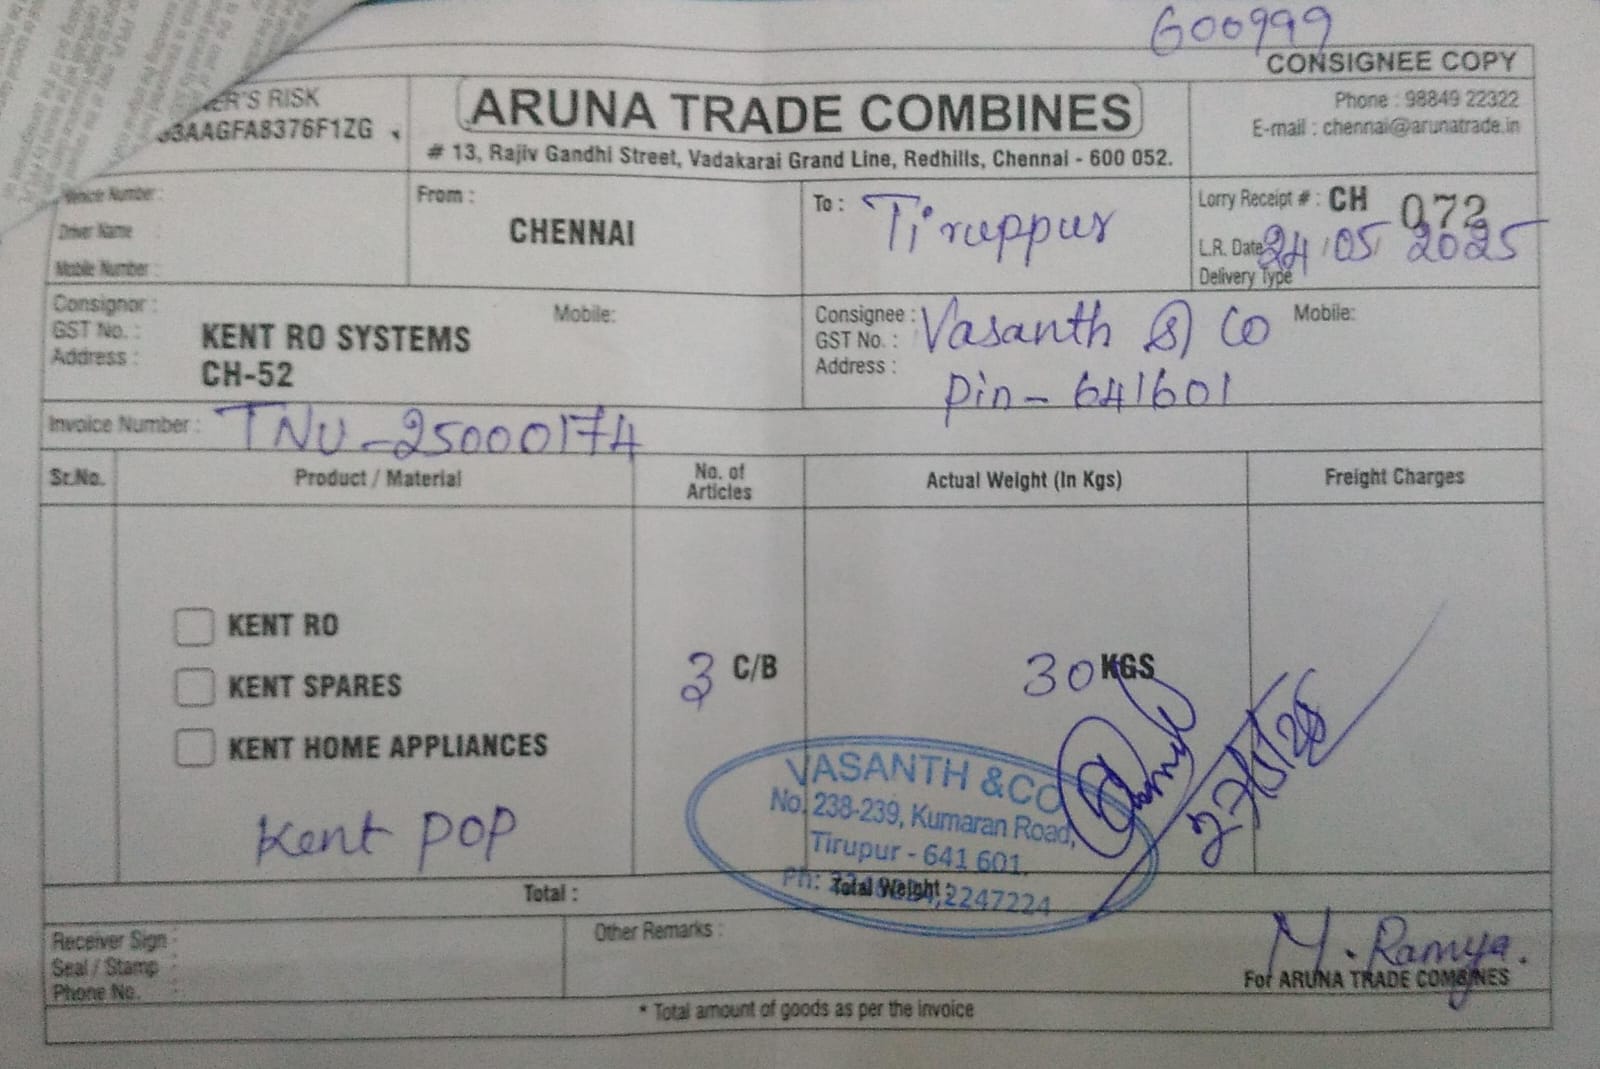 600999
CONSIGNEE COPY
ER'S RISK
3AAGFA8376F1ZG
ARUNA TRADE COMBINES
# 13, Rajiv Gandhi Street, Vadakarai Grand Line, Redhills, Chennai - 600 052.
Phone : 98849 22322
E-mail : chennai@arunatrade.in
Vehicle Number :
Driver Name :
Mobile Number :
From :
CHENNAI
To : Tiruppur
Lorry Receipt # : CH 072
L.R. Date 24/05/2025
Delivery Type
Consignor :
GST No. :
Address :
Mobile:
KENT RO SYSTEMS
CH-52
Consignee : Vasanth & Co Mobile:
GST No. :
Address :
Pin - 641601
Invoice Number : TNU-25000174
Sr.No. Product / Material No. of Articles Actual Weight (In Kgs) Freight Charges
KENT RO
KENT SPARES
KENT HOME APPLIANCES
3 C/B
30 KGS
Kent POP
VASANTH & CO
No. 238-239, Kumaran Road,
Tirupur - 641 601.
Ph: 2247224
Total :
Total Weight :
Receiver Sign :
Seal / Stamp :
Phone No. :
Other Remarks :
M. Ramya.
For ARUNA TRADE COMBINES
* Total amount of goods as per the invoice